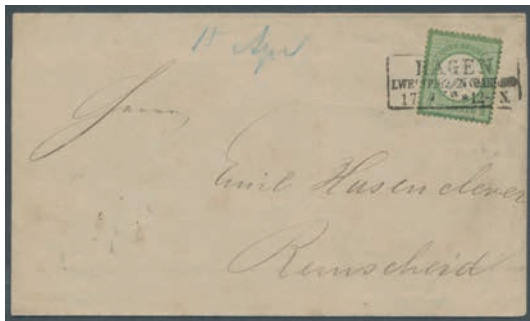 15 Apr
HAGEN
Herrn
Emil Hasenclever
Remscheid